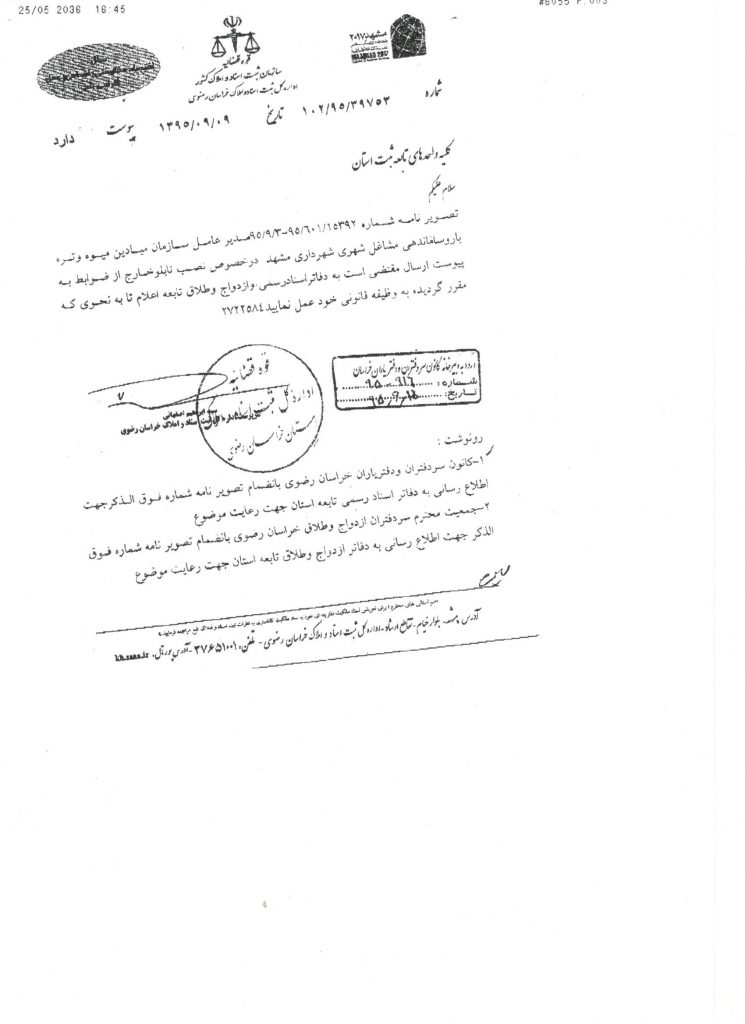 25/05 2036 16:45
#6055 P.003
مشهد ۲۰۱۷
MASHHAD 2017
قوه قضائیه
سازمان ثبت اسناد و املاک کشور
اداره کل ثبت اسناد و املاک خراسان رضوی
شماره ۱۰۲/۹۵/۳۹۷۵۳ تاریخ ۱۳۹۵/۰۹/۰۹ پیوست دارد
کلیه واحدهای تابعه ثبت استان
سلام علیکم
تصویر نامه شماره ۹۵/۶۰۱/۱۵۳۹۲-۹۵/۹/۳مدیر عامل سازمان میادین میوه وتره
باروساماندهی مشاغل شهری شهرداری مشهد درخصوص نصب تابلوخارج از ضوابط به
پیوست ارسال مقتضی است به دفاتراسنادرسمی وازدواج وطلاق تابعه اعلام تا به نحوی که
مقرر گردیده به وظیفه قانونی خود عمل نمایید۲۷۲۲۵۸۴
ورود به دبیرخانه کانون سردفتران و دفتریاران خراسان
شماره:
تاریخ:
قوه قضائیه
اداره کل ثبت اسناد
استان خراسان رضوی
ابراهیم اصفهانی
ثبت اسناد و املاک خراسان رضوی
رونوشت :
۱-کانون سردفتران ودفتریاران خراسان رضوی بانضمام تصویر نامه شماره فوق الذکرجهت
اطلاع رسانی به دفاتر اسناد رسمی تابعه استان جهت رعایت موضوع
۲-جمعیت محترم سردفتران ازدواج وطلاق خراسان رضوی بانضمام تصویر نامه شماره فوق
الذکر جهت اطلاع رسانی به دفاتر ازدراج وطلاق تابعه استان جهت رعایت موضوع
آدرس :مشهد، بلوار خیام - تقاطع ارشاد - اداره کل ثبت اسناد و املاک خراسان رضوی - تلفن: ۳۷۶۵۱۰۰۱ - آدرس پورتال: